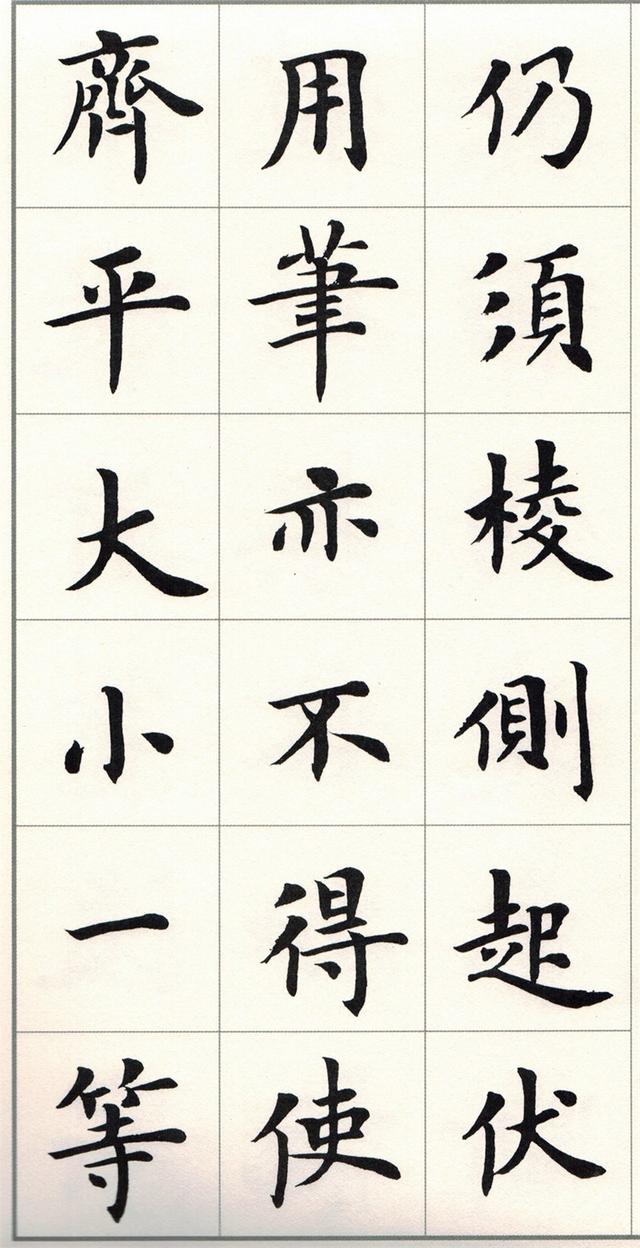 仍須棱側起伏
用筆亦不得使
齊平大小一等